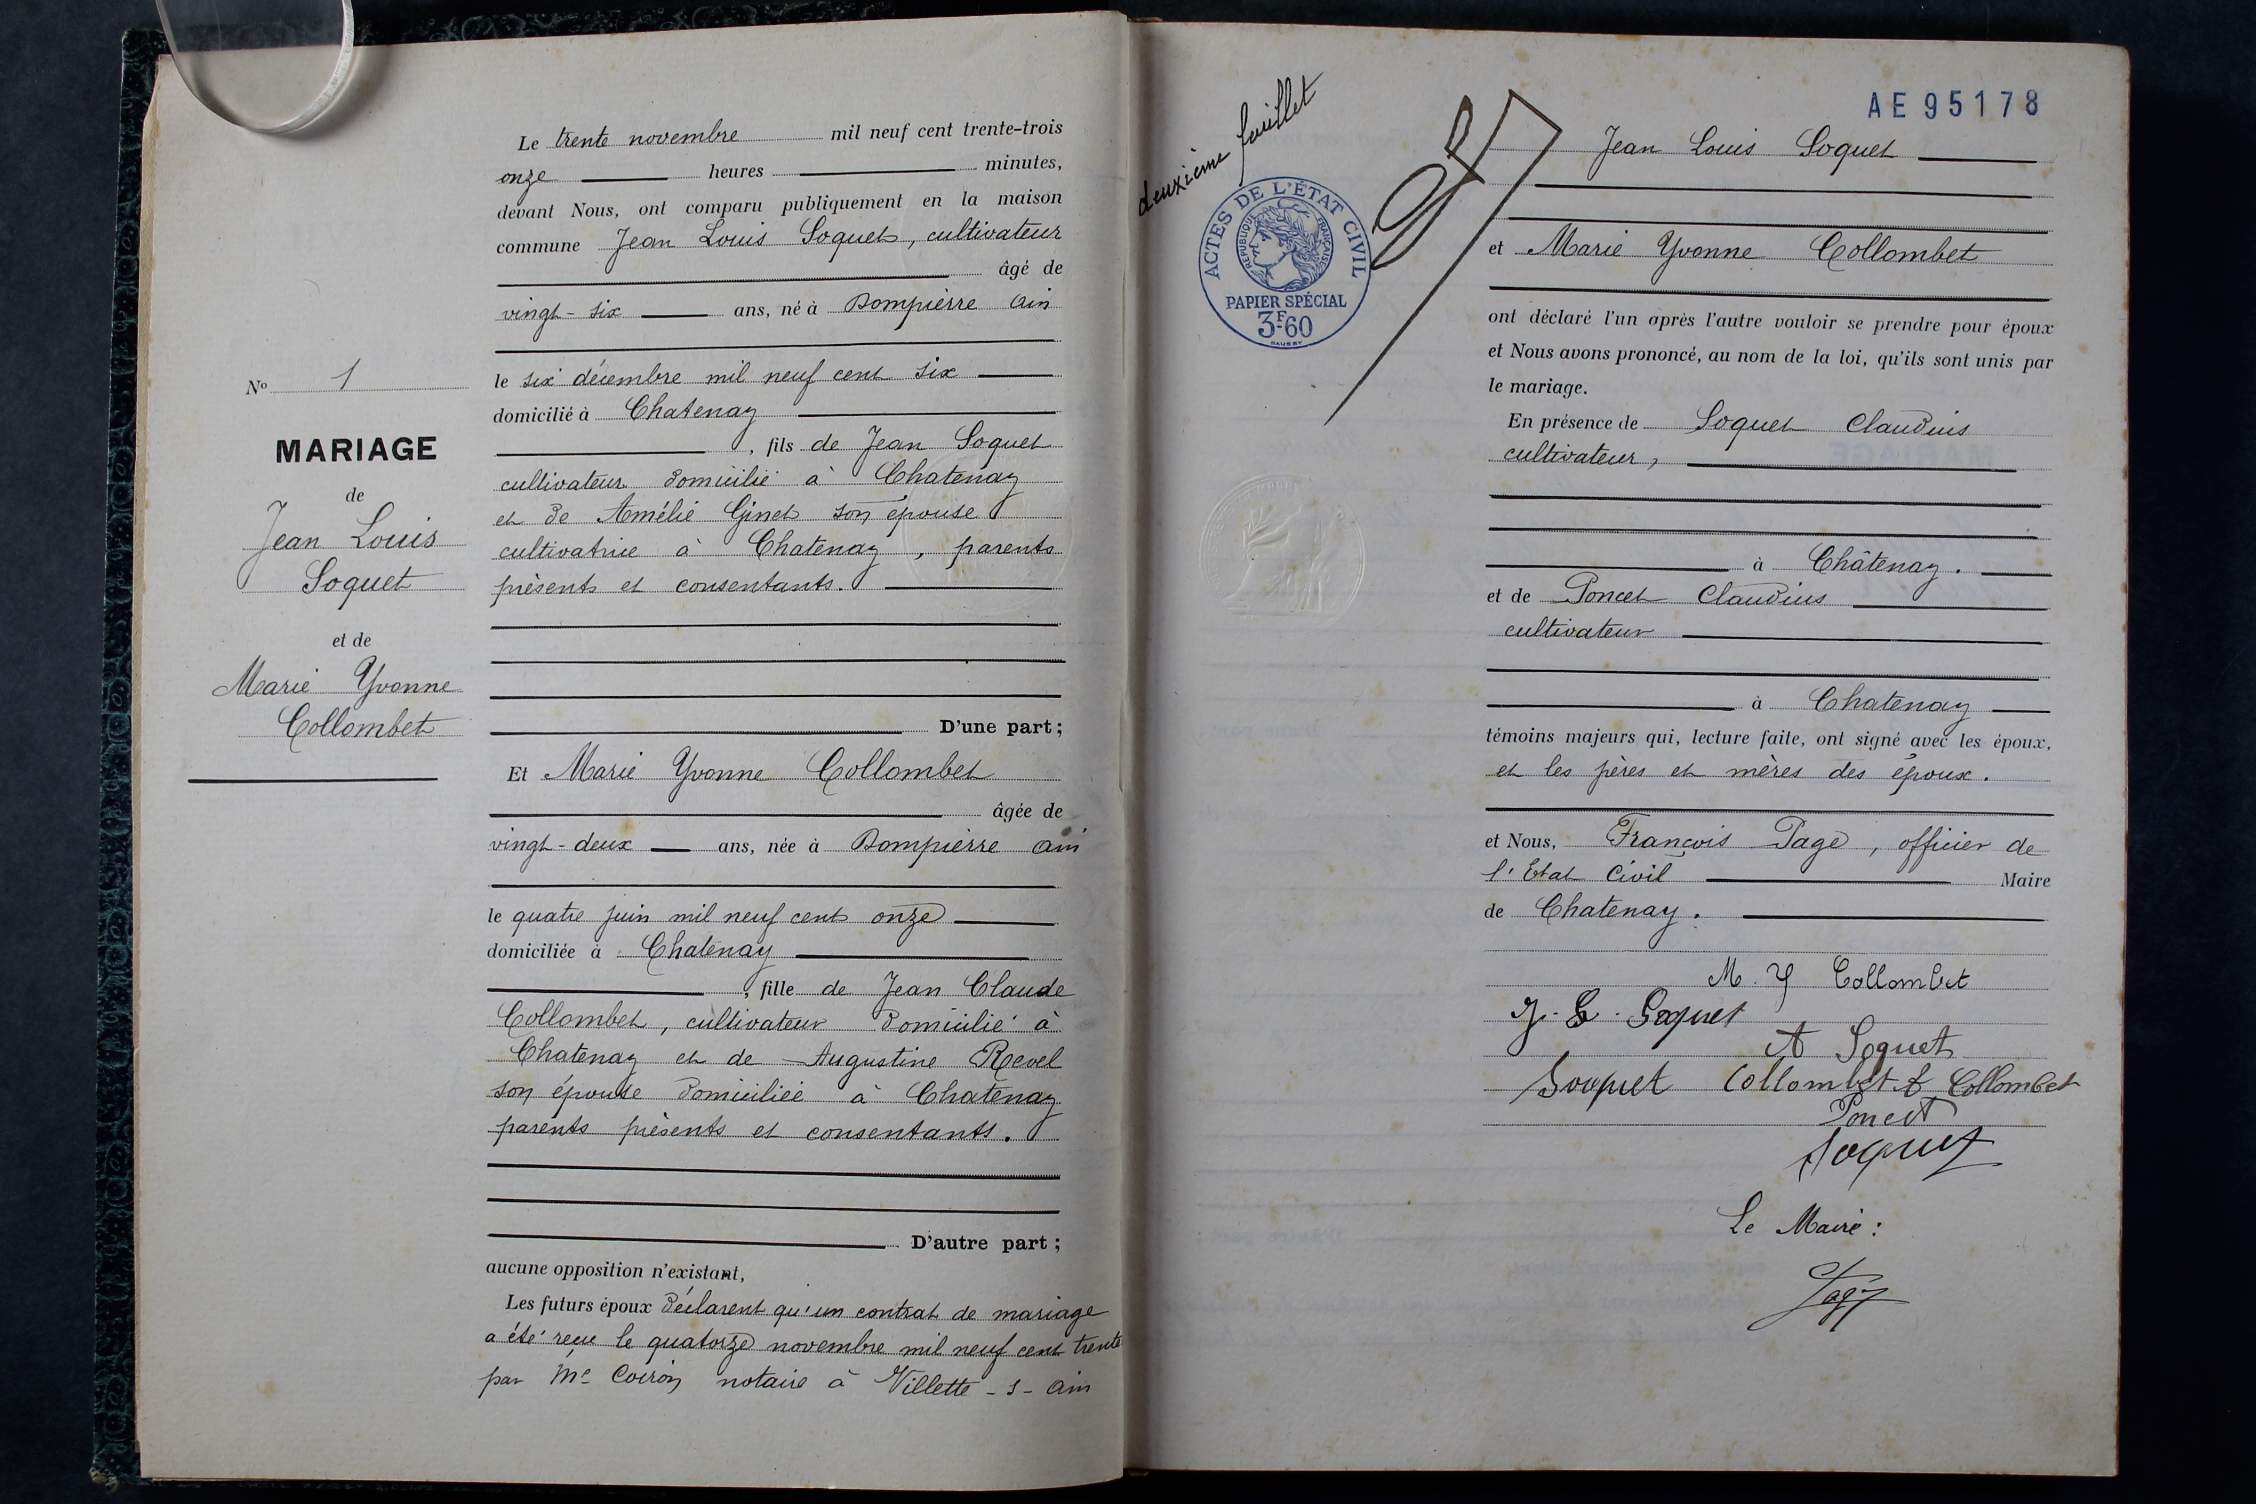 Nº 1
MARIAGE
de
Jean Louis
Soquet
et de
Marie Yvonne
Collombet
Le trente novembre mil neuf cent trente-trois
onze heures minutes,
devant Nous, ont comparu publiquement en la maison
commune Jean Louis Soquet, cultivateur
âgé de
vingt-six ans, né à Dompierre Ain
le six décembre mil neuf cent six
domicilié à Chatenay
, fils de Jean Soquet
cultivateur domicilié à Chatenay
et de Amélie Ginet son épouse
cultivatrice à Chatenay, parents
présents et consentants.
D'une part;
Et Marie Yvonne Collombet
âgée de
vingt-deux ans, née à Dompierre Ain
le quatre juin mil neuf cent onze
domiciliée à Chatenay
, fille de Jean Claude
Collombet, cultivateur domicilié à
Chatenay et de Augustine Revel
son épouse domiciliée à Chatenay
parents présents et consentants.
D'autre part;
aucune opposition n'existant,
Les futurs époux déclarent qu'un contrat de mariage
a été reçu le quatorze novembre mil neuf cent trente
par Me Coiron notaire à Villette-s-Ain
deuxième feuillet
ACTES DE L'ÉTAT CIVIL
RÉPUBLIQUE FRANÇAISE
PAPIER SPÉCIAL
3F60
AE95178
Jean Louis Soquet
et Marie Yvonne Collombet
ont déclaré l'un après l'autre vouloir se prendre pour époux
et Nous avons prononcé, au nom de la loi, qu'ils sont unis par
le mariage.
En présence de Soquet Claudius
cultivateur,
à Châtenay.
et de Poncet Claudius
cultivateur
à Chatenay
témoins majeurs qui, lecture faite, ont signé avec les époux,
et les pères et mères des époux.
et Nous, François Page, officier de
l'Etat Civil Maire
de Chatenay.
M. Y Collombet
J. L. Soquet
A Soquet
Soquet Collombet A Collombet
Poncet
Soquet
Le Maire:
Page